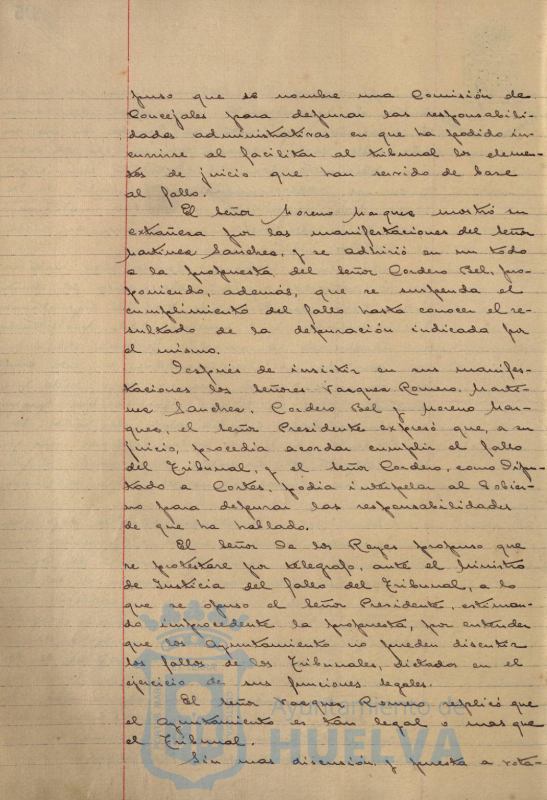 puso que se nombre una Comisión de
Concejales para depurar las responsabili-
dades administrativas en que ha podido in-
currirse al facilitar al tribunal los elemen-
tos de juicio que han servido de base
al fallo.
El señor Moreno Marquez mostró su
extrañeza por las manifestaciones del señor
Martinez Sanchez, y se adhirió en un todo
a la propuesta del señor Cordero Bel, pro-
poniendo, además, que se suspenda el
cumplimiento del fallo hasta conocer el re-
sultado de la depuración indicada por
el mismo.
Después de insistir en sus manifes-
taciones los señores Vazquez Romero, Marti-
nez Sanchez, Cordero Bel y Moreno Mar-
quez, el señor Presidente expresó que, a su
juicio, procedia acordar cumplir el fallo
del Tribunal, y el señor Cordero, como Dipu-
tado a Cortes, podia interpelar al Gobier-
no para depurar las responsabilidades
de que ha hablado.
El señor de los Reyes propuso que
se protestare por telegrafo, ante el Ministro
de Justicia del fallo del Tribunal, a lo
que se opuso el señor Presidente, estiman-
do improcedente la propuesta, por entender
que los Ayuntamiento no pueden discutir
los fallos de los Tribunales, dictados en el
ejercicio de sus funciones legales.
El señor Vazquez Romero replicó que
el Ayuntamiento es tan legal o mas que
el Tribunal.
Sin mas discusión, y puesta a vota-
Ayuntamiento de
HUELVA